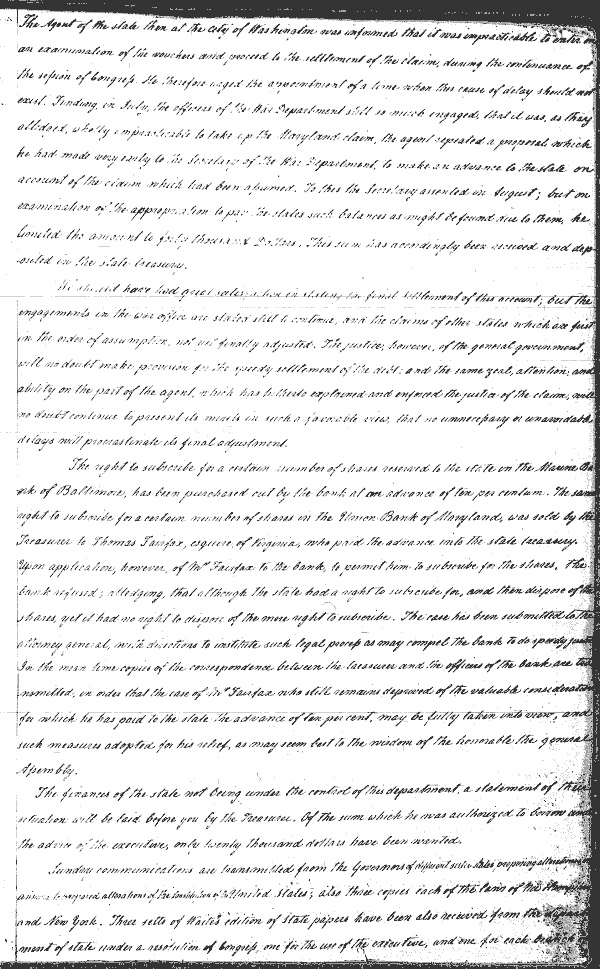 The Agent of the state then at the city of Washington was informed that it was impracticable to enter on
an examination of the vouchers and proceed to the settlement of the claim, during the continuance of
the session of Congress. He therefore urged the appointment of a time when this cause of delay should not
exist. Finding in July, the officers of the War Department still so much engaged, that it was, as they
alledged, wholly impracticable to take up the Maryland claim, the agent repeated a proposal which
he had made very early to the Secretary of the War Department, to make an advance to the state on
account of the claim which had been assumed. To this the Secretary assented in August; but on
examination of the appropriation to pay the states such balances as might be found due to them, he
limited the amount to forty thousand Dollars. This sum has accordingly been received and dep-
osited in the state treasury.
We should have had great satisfaction in stating the final settlement of this account; but the
engagements in the war office are stated still to continue, and the claims of other states which are first
in the order of assumption, not yet finally adjusted. The justice, however, of the general government,
will no doubt make provision for the speedy settlement of the debt: and the same zeal, attention, and
ability on the part of the agent, which has hitherto explained and enforced the justice of the claim, will
no doubt continue to present its merits in such a favorable view, that no unnecessary or unavoidable
delays will procrastinate its final adjustment.
The right to subscribe for a certain number of shares reserved to the state in the Marine Ba-
nk of Baltimore, has been purchased out by the bank at an advance of ten per centum. The same
right to subscribe for a certain number of shares in the Union Bank of Maryland, was sold by the
Treasurer to Thomas Fairfax, esquire of Virginia, who paid the advance into the state treasury.
Upon application, however, of Mr Fairfax to the bank, to permit him to subscribe for the shares, the
bank refused; alledging, that although the state had a right to subscribe for, and then dispose of the
shares, yet it had no right to dispose of the mere right to subscribe. The case has been submitted to the
attorney general, with directions to institute such legal process as may compel the bank to do speedy justice
In the mean time copies of the correspondence between the treasurer and the officers of the bank are tra-
nsmitted, in order that the case of Mr Fairfax who still remains deprived of the valuable consideration
for which he has paid to the state the advance of ten per cent, may be fully taken into view, and
such measures adopted for his relief, as may seem best to the wisdom of the honorable the general
Assembly.
The finances of the state not being under the control of this department, a statement of their
situation will be laid before you by the Treasurer. Of the sum which he was authorized to borrow under
the advice of the executive, only twenty thousand dollars have been wanted.
Sundry communications are transmitted from the Governors of different sister states, proposing alterations
proposed alterations of the Constitution of the United States; also three copies each of the laws of
and New York. Three setts of Waite's edition of State papers have been also received from the depart-
ment of state under a resolution of Congress, one for the use of the executive, and one for each branch of